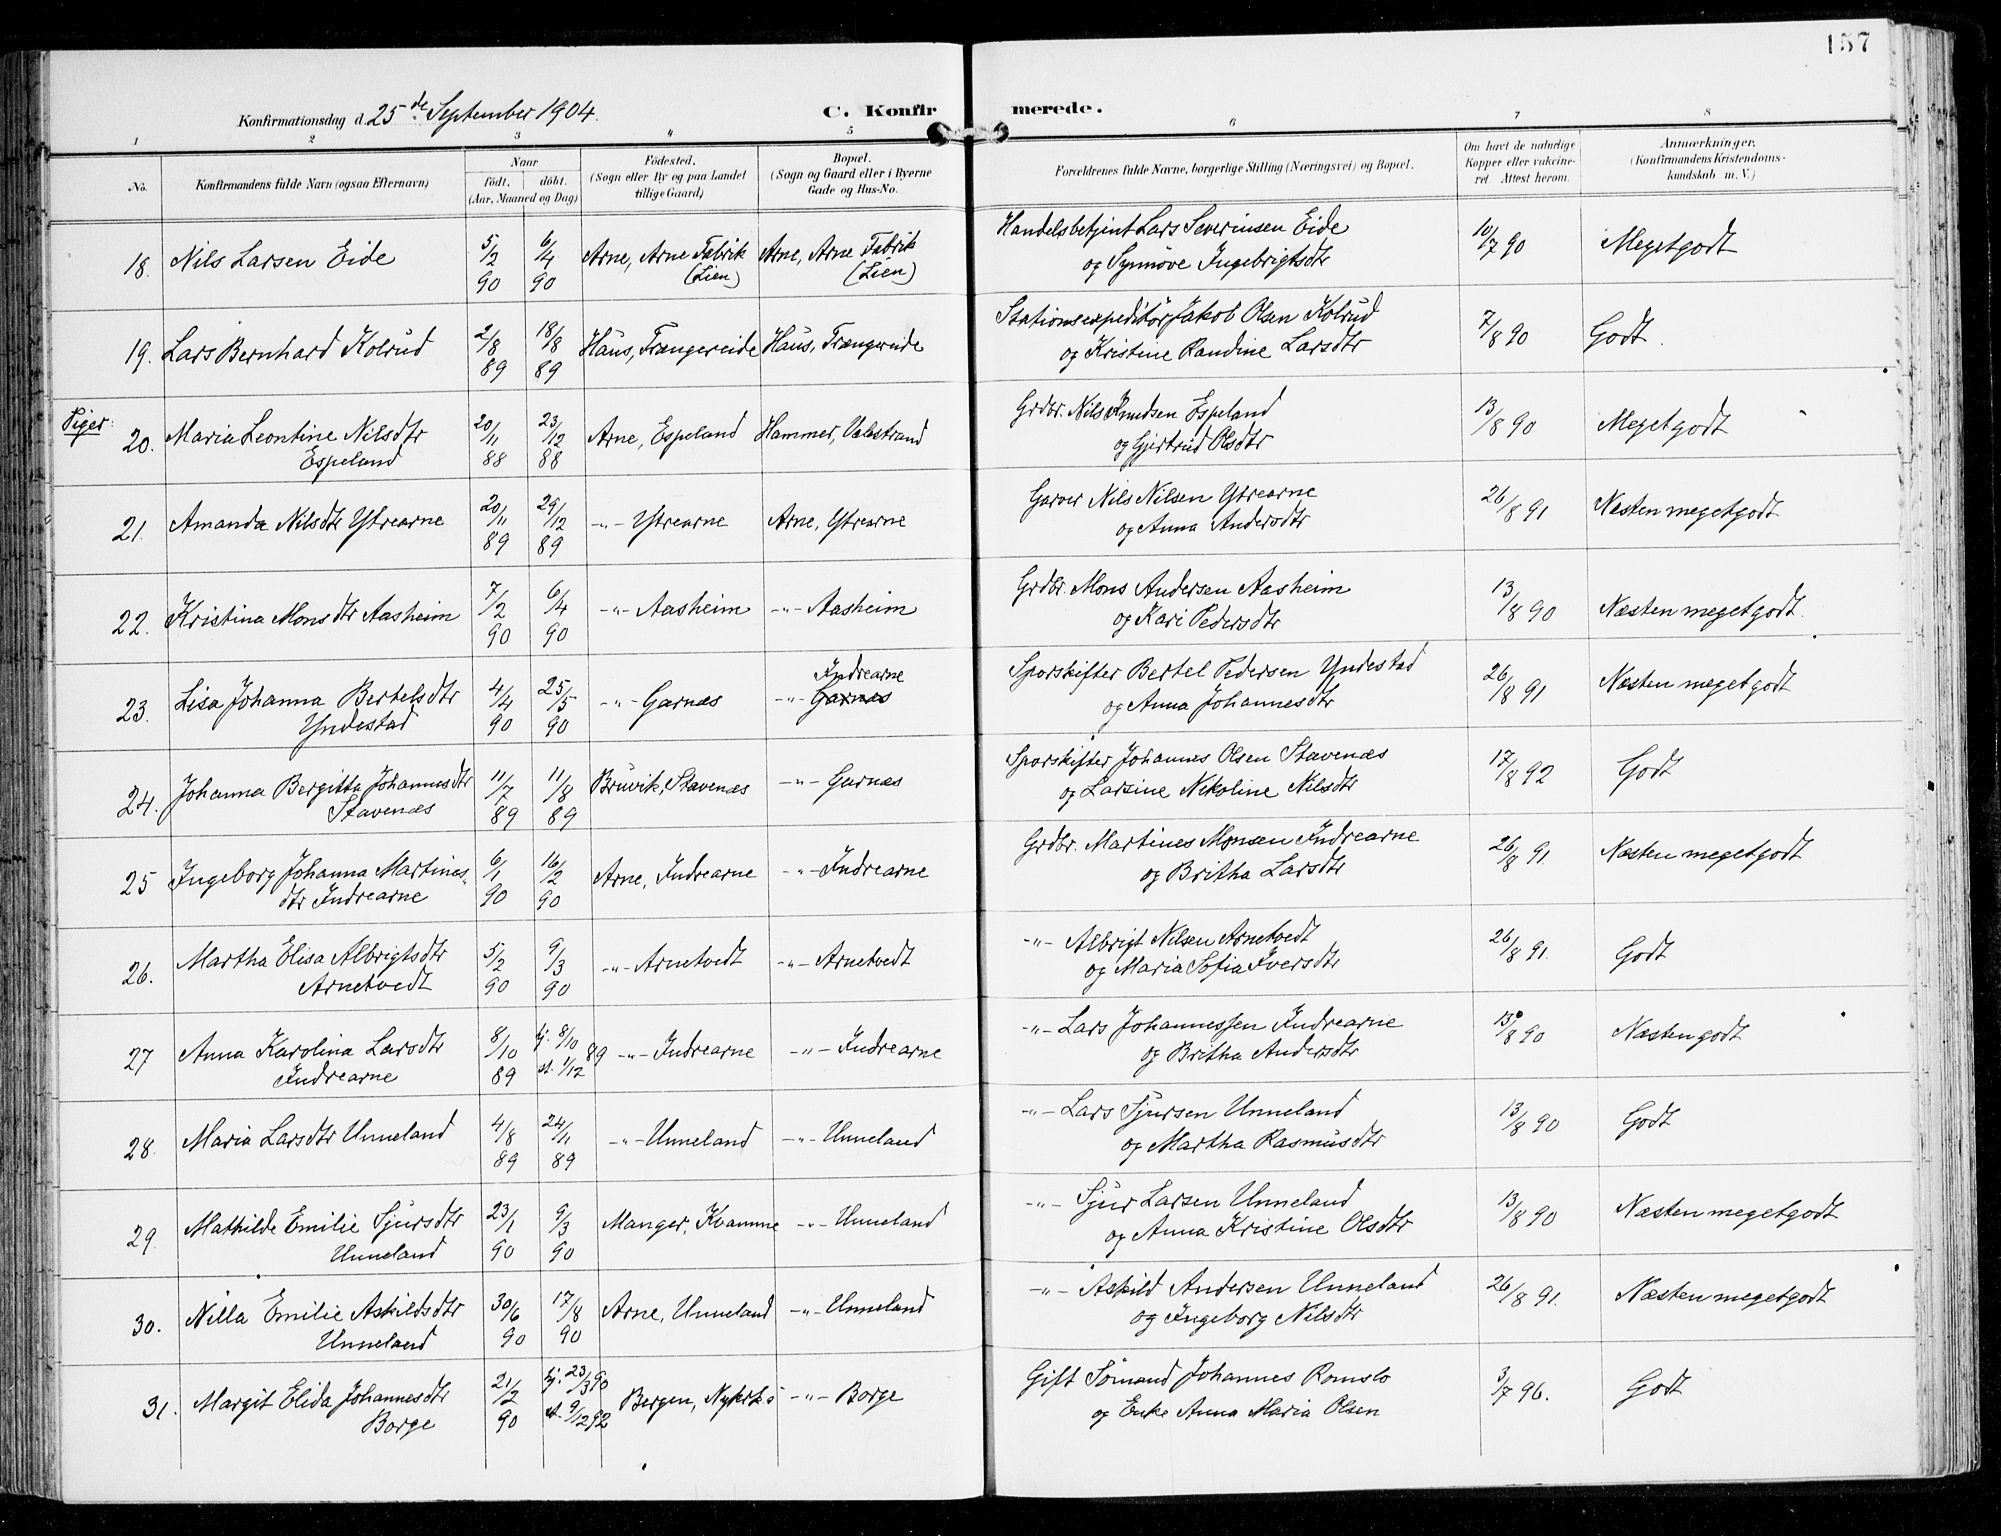 157
Konfirmationsdag d. 25de September 1904. C. Konfir merede.
1 2 3 4 5 6 7 8
No. Konfirmandens fulde Navn (ogsaa Efternavn) Naar født. døbt. (Aar, Maaned og Dag) Fødested. (Sogn eller By og paa Landet tillige Gaard) Bopæl. (Sogn og Gaard eller i Byerne Gade og Hus-No. Forældrenes fulde Navne, borgerlige Stilling (Næringsvei) og Bopæl. Om havt de naturlige Kopper eller vakcineret Attest herom. Anmærkninger. (Konfirmandens Kristendomskundskab m. V.)
18. Nils Larsen Eide 5/2 90 6/4 90 Arne, Arne Fabrik (Lien) Arne, Arne Fabrik (Lien) Handelsbetjent Lars Severinsen Eide og Synnøve Ingebrigtsdtr 10/7 90 Megetgodt
19. Lars Bernhard Kolrud 2/8 89 18/8 89 Haus, Trængereide Haus, Trængereide Stationsexpeditør Jakob Olsen Kolrud og Kristine Randine Larsdtr 7/8 90 Godt.
Piger:
20. Maria Leontine Nilsdtr Espeland 20/11 88 23/12 88 Arne, Espeland Hammer, Valestrand Grdbr. Nils Knudsen Espeland og Gjertrud Olsdtr 13/8 90 Megetgodt
21. Amanda Nilsdtr Ytrearne 20/11 89 29/12 89 -"- Ytrearne Arne, Ytrearne Garver Nils Nilsen Ytrearne og Anna Andersdtr 26/8 91 Næsten megetgodt
22. Kristina Monsdtr Aasheim 7/2 90 6/4 90 -"- Aasheim -"- Aasheim Grdbr. Mons Andersen Aasheim og Kari Pedersdtr 13/8 90 Næsten megetgodt.
23. Lisa Johanna Bertelsdtr Yndestad 4/4 90 25/5 90 -"- Garnæs -"- Indrearne Garnæs Sporskifter Bertel Pedersen Yndestad og Anna Johannesdtr 26/8 91 Næsten megetgodt
24. Johanna Bergitta Johannesdtr Stavenæs 11/7 89 11/8 89 Bruvik, Stavenæs -"- Garnæs Sporskifter Johannes Olsen Stavenæs og Larsine Nikoline Nilsdtr 17/8 92 Godt
25 Ingeborg Johanna Martinesdtr Indrearne 6/1 90 16/2 90 Arne, Indrearne -"- Indrearne Grdbr. Martines Monsen Indrearne og Britha Larsdtr 26/8 91 Næsten megetgodt
26. Martha Elisa Albrigtsdtr Arnetvedt 5/2 90 9/3 90 -"- Arnetvedt -"- Arnetvedt -"- Albrigt Nilsen Arnetvedt og Maria Sofia Iversdtr 26/8 91. Godt
27 Anna Karolina Larsdtr Indrearne 8/10 89 hj. 8/10 st. 1/12 89 -"- Indrearne -"- Indrearne -"- Lars Johannessen Indrearne og Britha Andersdtr 13/8 90 Næstengodt
28. Maria Larsdtr Unneland 4/8 89 24/11 89 -"- Unneland -"- Unneland -"- Lars Sjursen Unneland og Martha Rasmusdtr 13/8 90 Godt
29. Mathilde Emilie Sjursdtr Unneland 23/1 90 9/3 90 Manger, Kvamme -"- Unneland -"- Sjur Larsen Unneland og Anna Kristine Olsdtr 13/8 90 Næsten megetgodt
30. Nilla Emilie Askildsdtr Unneland 30/6 90 17/8 90 Arne, Unneland -"- Unneland -"- Askild Andersen Unneland og Ingeborg Nilsdtr 26/8 91. Næsten megetgodt
31. Margit Elida Johannesdtr Borge 21/2 90 hj. 23/3 90 st. 9/12 92 Bergen, Nykrks -"- Borge Gift Sømand Johannes Romslo og Enke Anna Maria Olsen 3/7 96. Godt